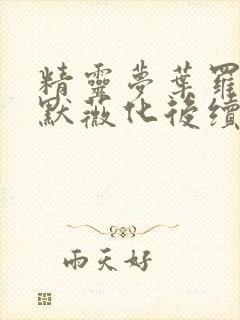 精靈夢葉羅
默薇化後續
雨天好